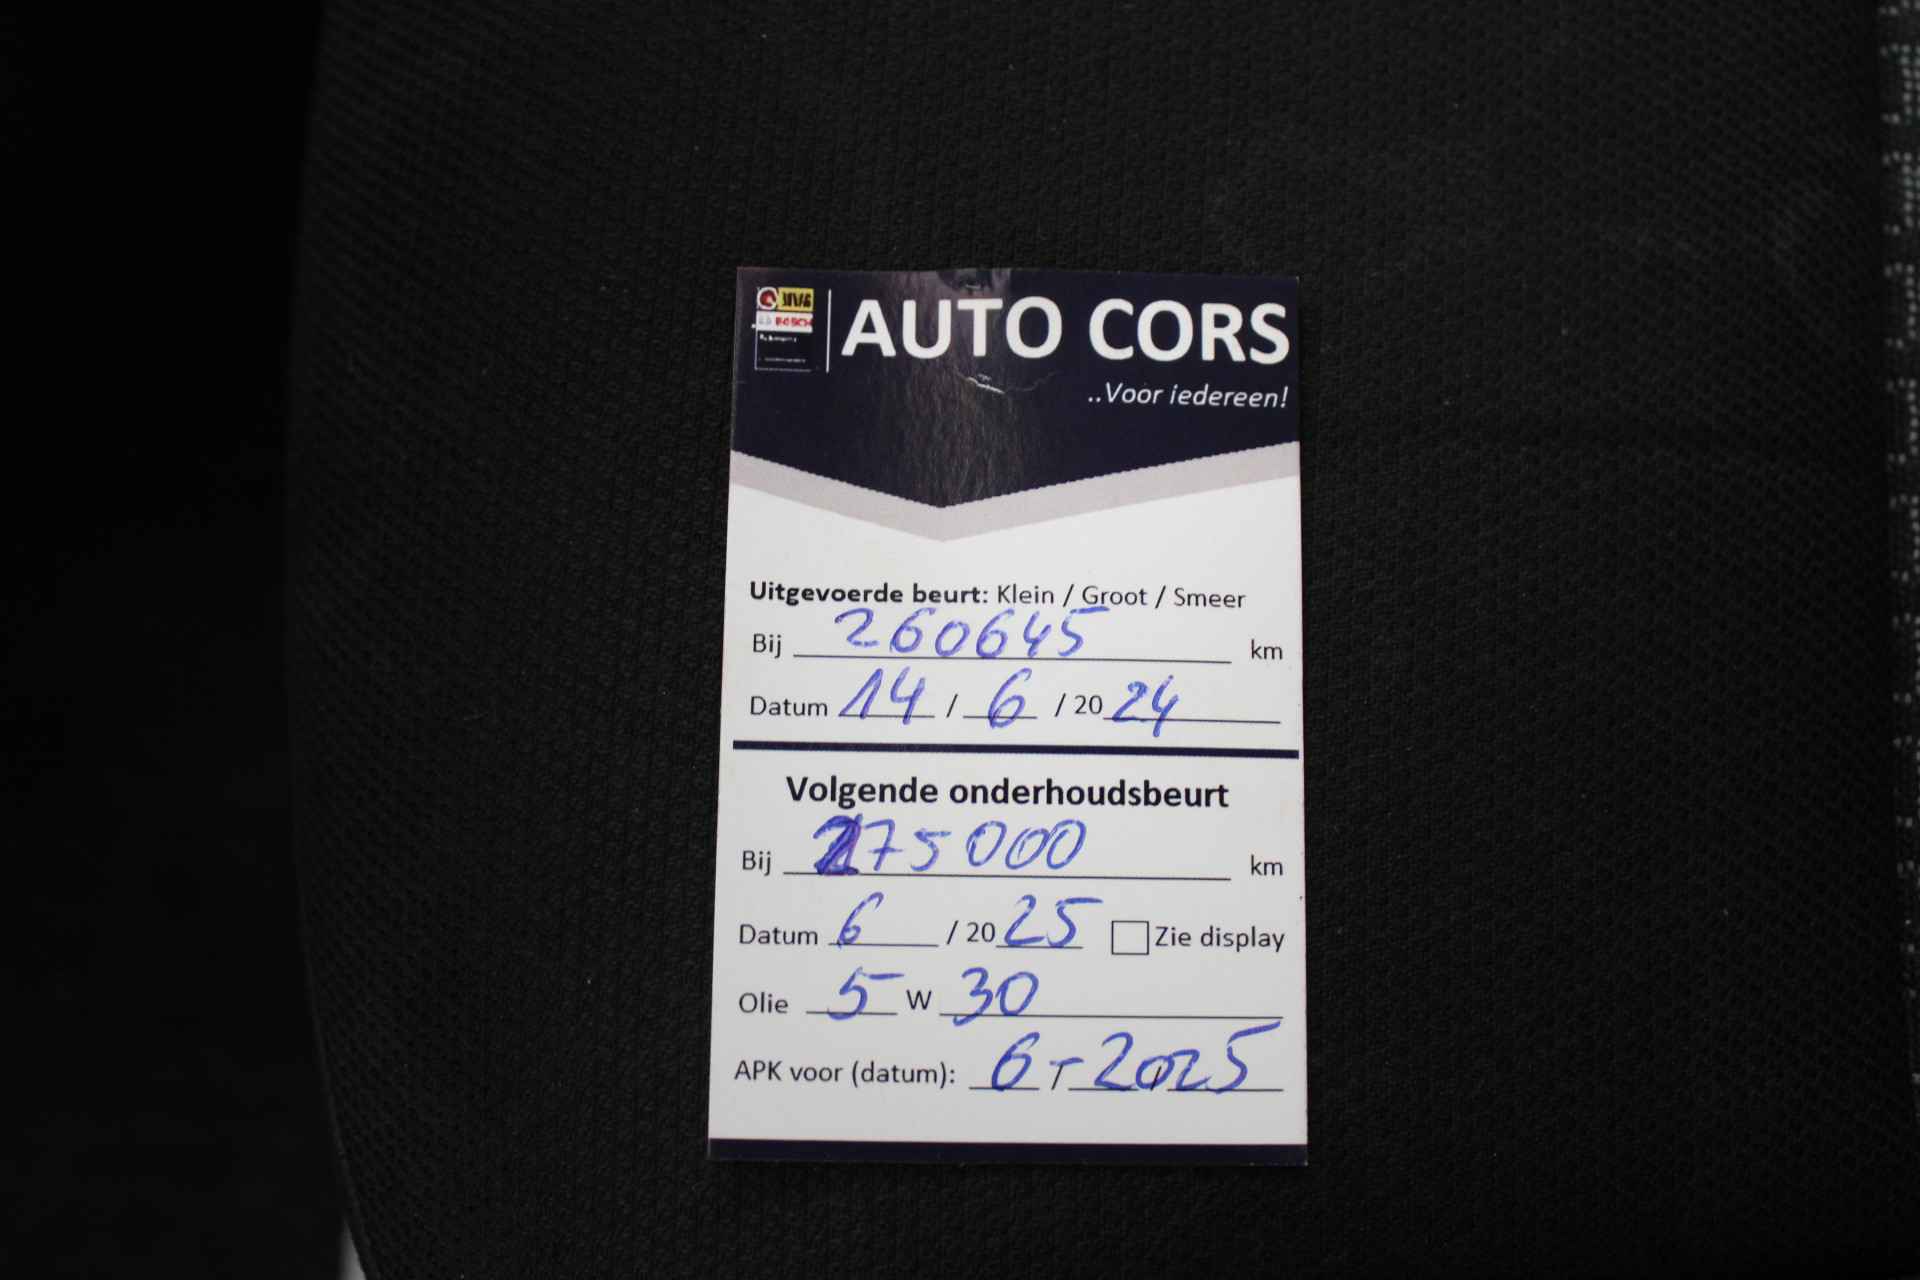 BOSCH
AUTO CORS
..Voor iedereen!
Uitgevoerde beurt: Klein / Groot / Smeer
Bij 260645 km
Datum 14 / 6 / 20 24
Volgende onderhoudsbeurt
Bij 275000 km
Datum 6 / 20 25 Zie display
Olie 5 W 30
APK voor (datum): 6 - 2025